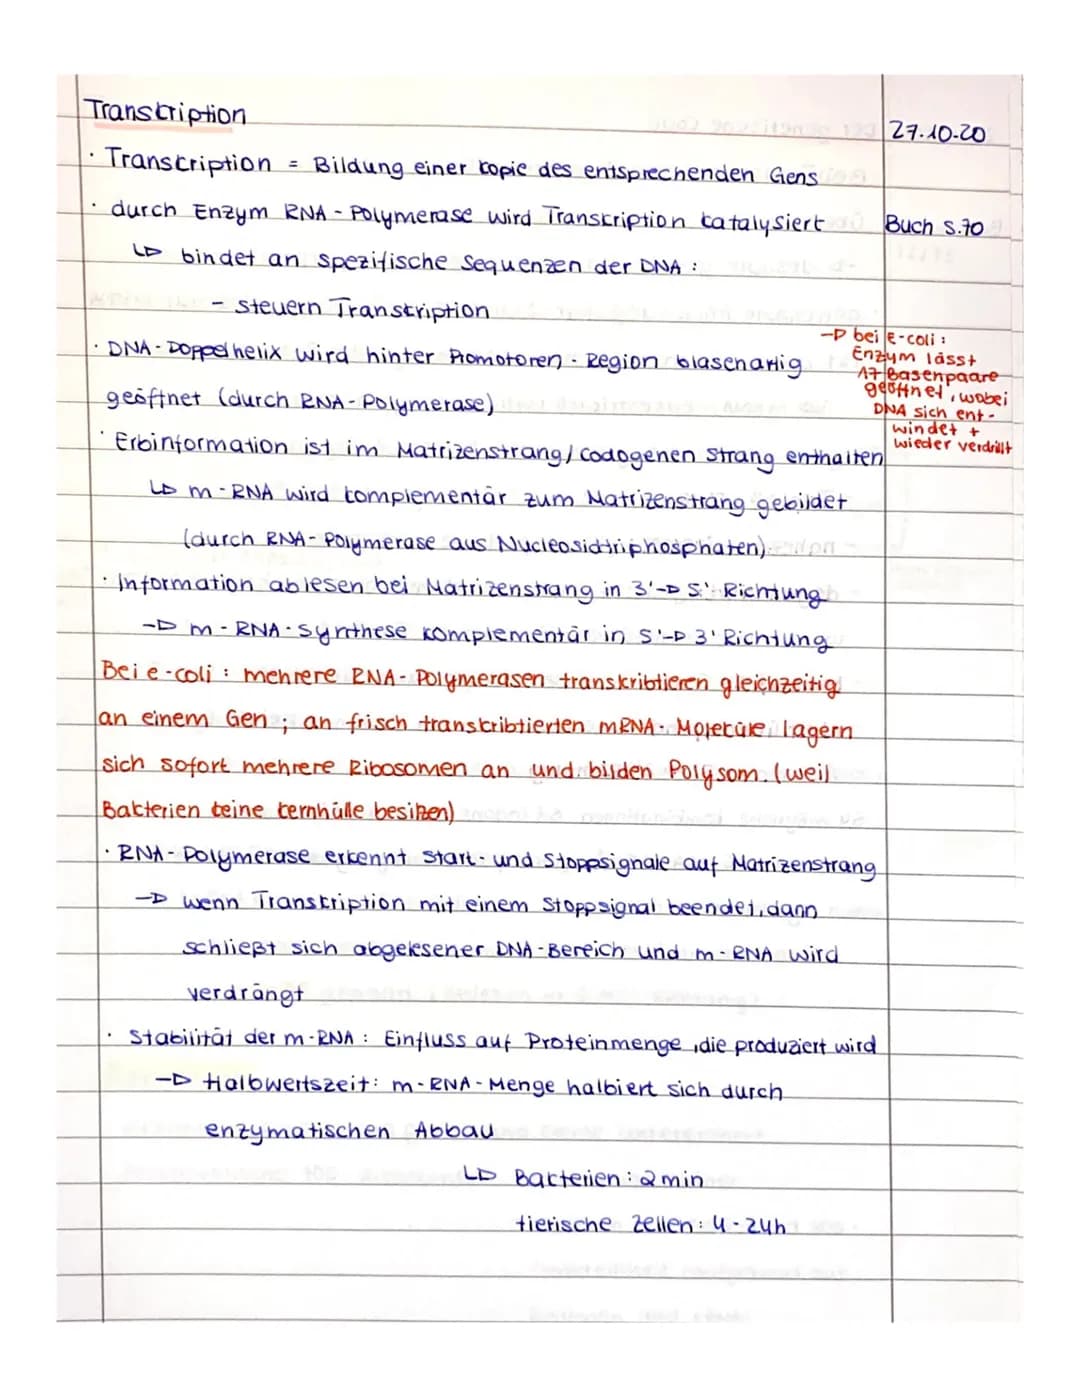 Transkription
27.10.20
· Transkription = Bildung einer Kopie des entsprechenden Gens
· durch Enzym RNA-Polymerase wird Transkription katalysiert
Buch S.70
↳ bindet an spezifische Sequenzen der DNA:
- steuern Transkription
· DNA-Doppelhelix wird hinter Promotoren-Region blasenartig
geöffnet (durch RNA-Polymerase)
→ bei E-coli:
Enzym lässt
17 Basenpaare
geöffnet, wobei
DNA sich ent-
windet +
wieder verdrillt
· Erbinformation ist im Matrizenstrang/codogenen Strang enthalten
↳ m-RNA wird komplementär zum Matrizenstrang gebildet
(durch RNA-Polymerase aus Nucleosidtriphosphaten)
· Information ablesen bei Matrizenstrang in 3'→5' Richtung
→ m-RNA-Synthese komplementär in 5'→3' Richtung
Bei e-coli: mehrere RNA-Polymerasen transkribtieren gleichzeitig
an einem Gen; an frisch transkribtierten mRNA-Moleküle lagern
sich sofort mehrere Ribosomen an und bilden Polysom. (weil
Bakterien keine Kernhülle besitzen)
· RNA-Polymerase erkennt Start- und Stoppsignale auf Matrizenstrang
→ wenn Transkription mit einem Stoppsignal beendet, dann
schließt sich abgelesener DNA-Bereich und m-RNA wird
verdrängt
· Stabilität der m-RNA: Einfluss auf Proteinmenge, die produziert wird
→ Halbwertszeit: m-RNA-Menge halbiert sich durch
enzymatischen Abbau
↳ Bakterien: 2 min
tierische Zellen: 4-24h